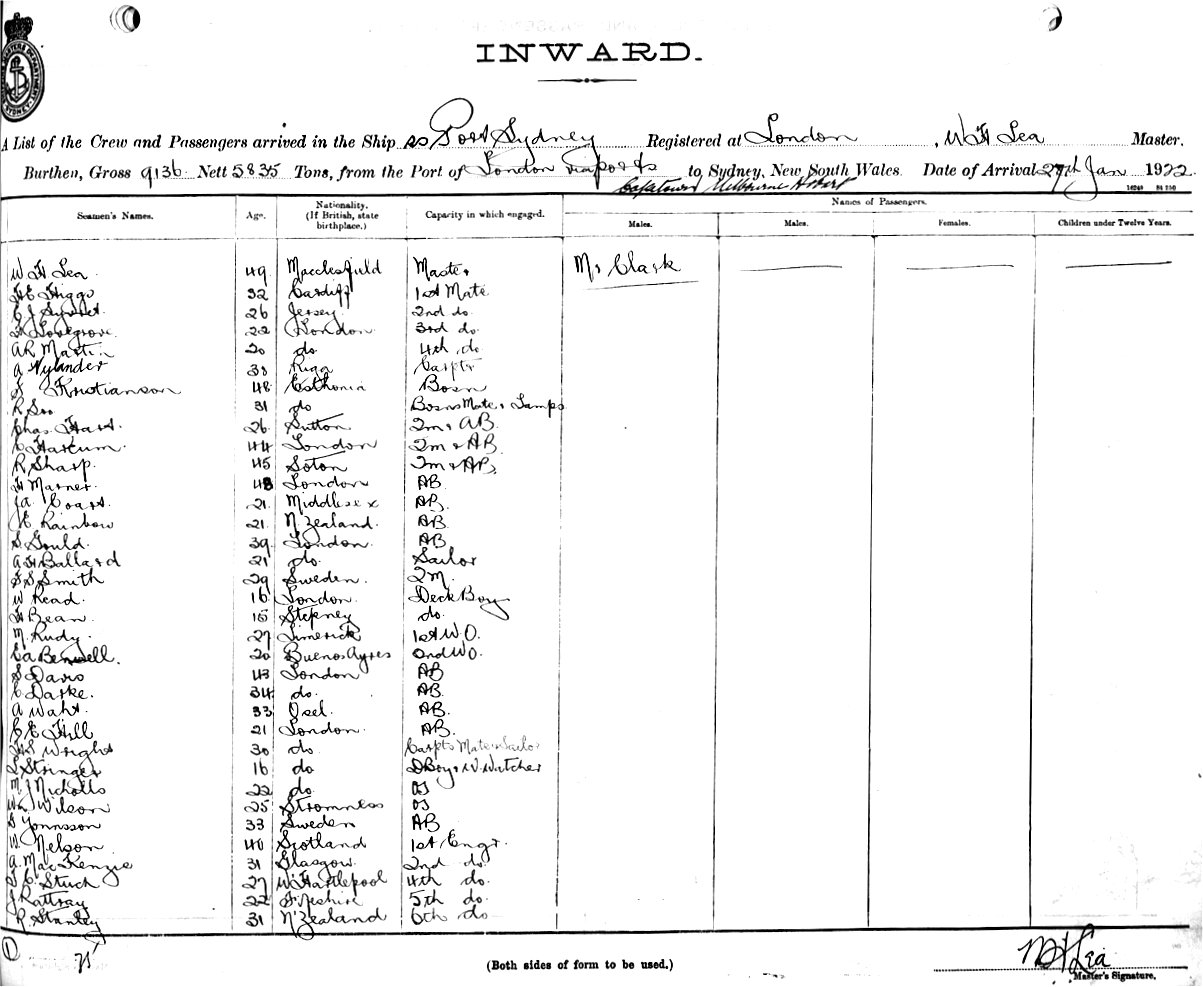 INWARD.
A List of the Crew and Passengers arrived in the Ship ss Port Sydney Registered at London , W H Lea Master.
Burthen, Gross 9136 Nett 5835 Tons, from the Port of London via ports to Sydney, New South Wales. Date of Arrival 27th Jan 1922.
Capetown Melbourne Hobart
Seamen's Names. Age. Nationality. (If British, state birthplace.) Capacity in which engaged. Names of Passengers.
Males. Males. Females. Children under Twelve Years.
W H Lea 49 Macclesfield Master Mr Clark
H E Higgs 32 Cardiff 1st Mate
C J Syvret 26 Jersey 2nd do
Lovegrove 22 London 3rd do.
A R Martin 20 do 4th do
A Nylander 30 Riga Carptr
J Kristianson 48 Esthonia Bosn
R Soo 31 do Bosns Mate & Lamps
Chas. Hart. 26 Sutton Qm & AB.
C Harcum. 44 London Qm & AB
R Sharp. 45 Soton Qm & AB.
H Marner. 48 London AB.
JA Coast. 21. Middlesex AB.
J E Rainbow 21. N. Zealand. AB
S. Gould. 39 London. AB
A H Ballard 21 do. Sailor
F S Smith 29 Sweden. QM.
W Read 16 London. Deck Boy
H Bean. 15 Stepney do.
M. Rudy. 27 Limerick 1st W O.
E A Benwell. 20 Buenos Ayres 2nd W O.
S Davis 43 London AB
C Darke. 34 do. AB.
A Waht. 33 Osel. AB.
C E Hill 21 London. AB.
H S Wright 30 do Carpts Mate & Sailor
L Stringer 16 do D Boy & W. Watcher
M J Nicholls 22 do. OS
Wm Wilson 25 Stromness OS
Yonnsson 33 Sweden AB
W. Nelson 40 Scotland 1st Engr.
A. Mac Kenzie 31 Glasgow. 2nd do.
J C. Stuck 27 W. Hartlepool 4th do.
J Rattray 22 F'Reshire 5th do.
R. Stanley 31 N' Zealand 6th do
1
(Both sides of form to be used.)
W H Lea
Master's Signature.